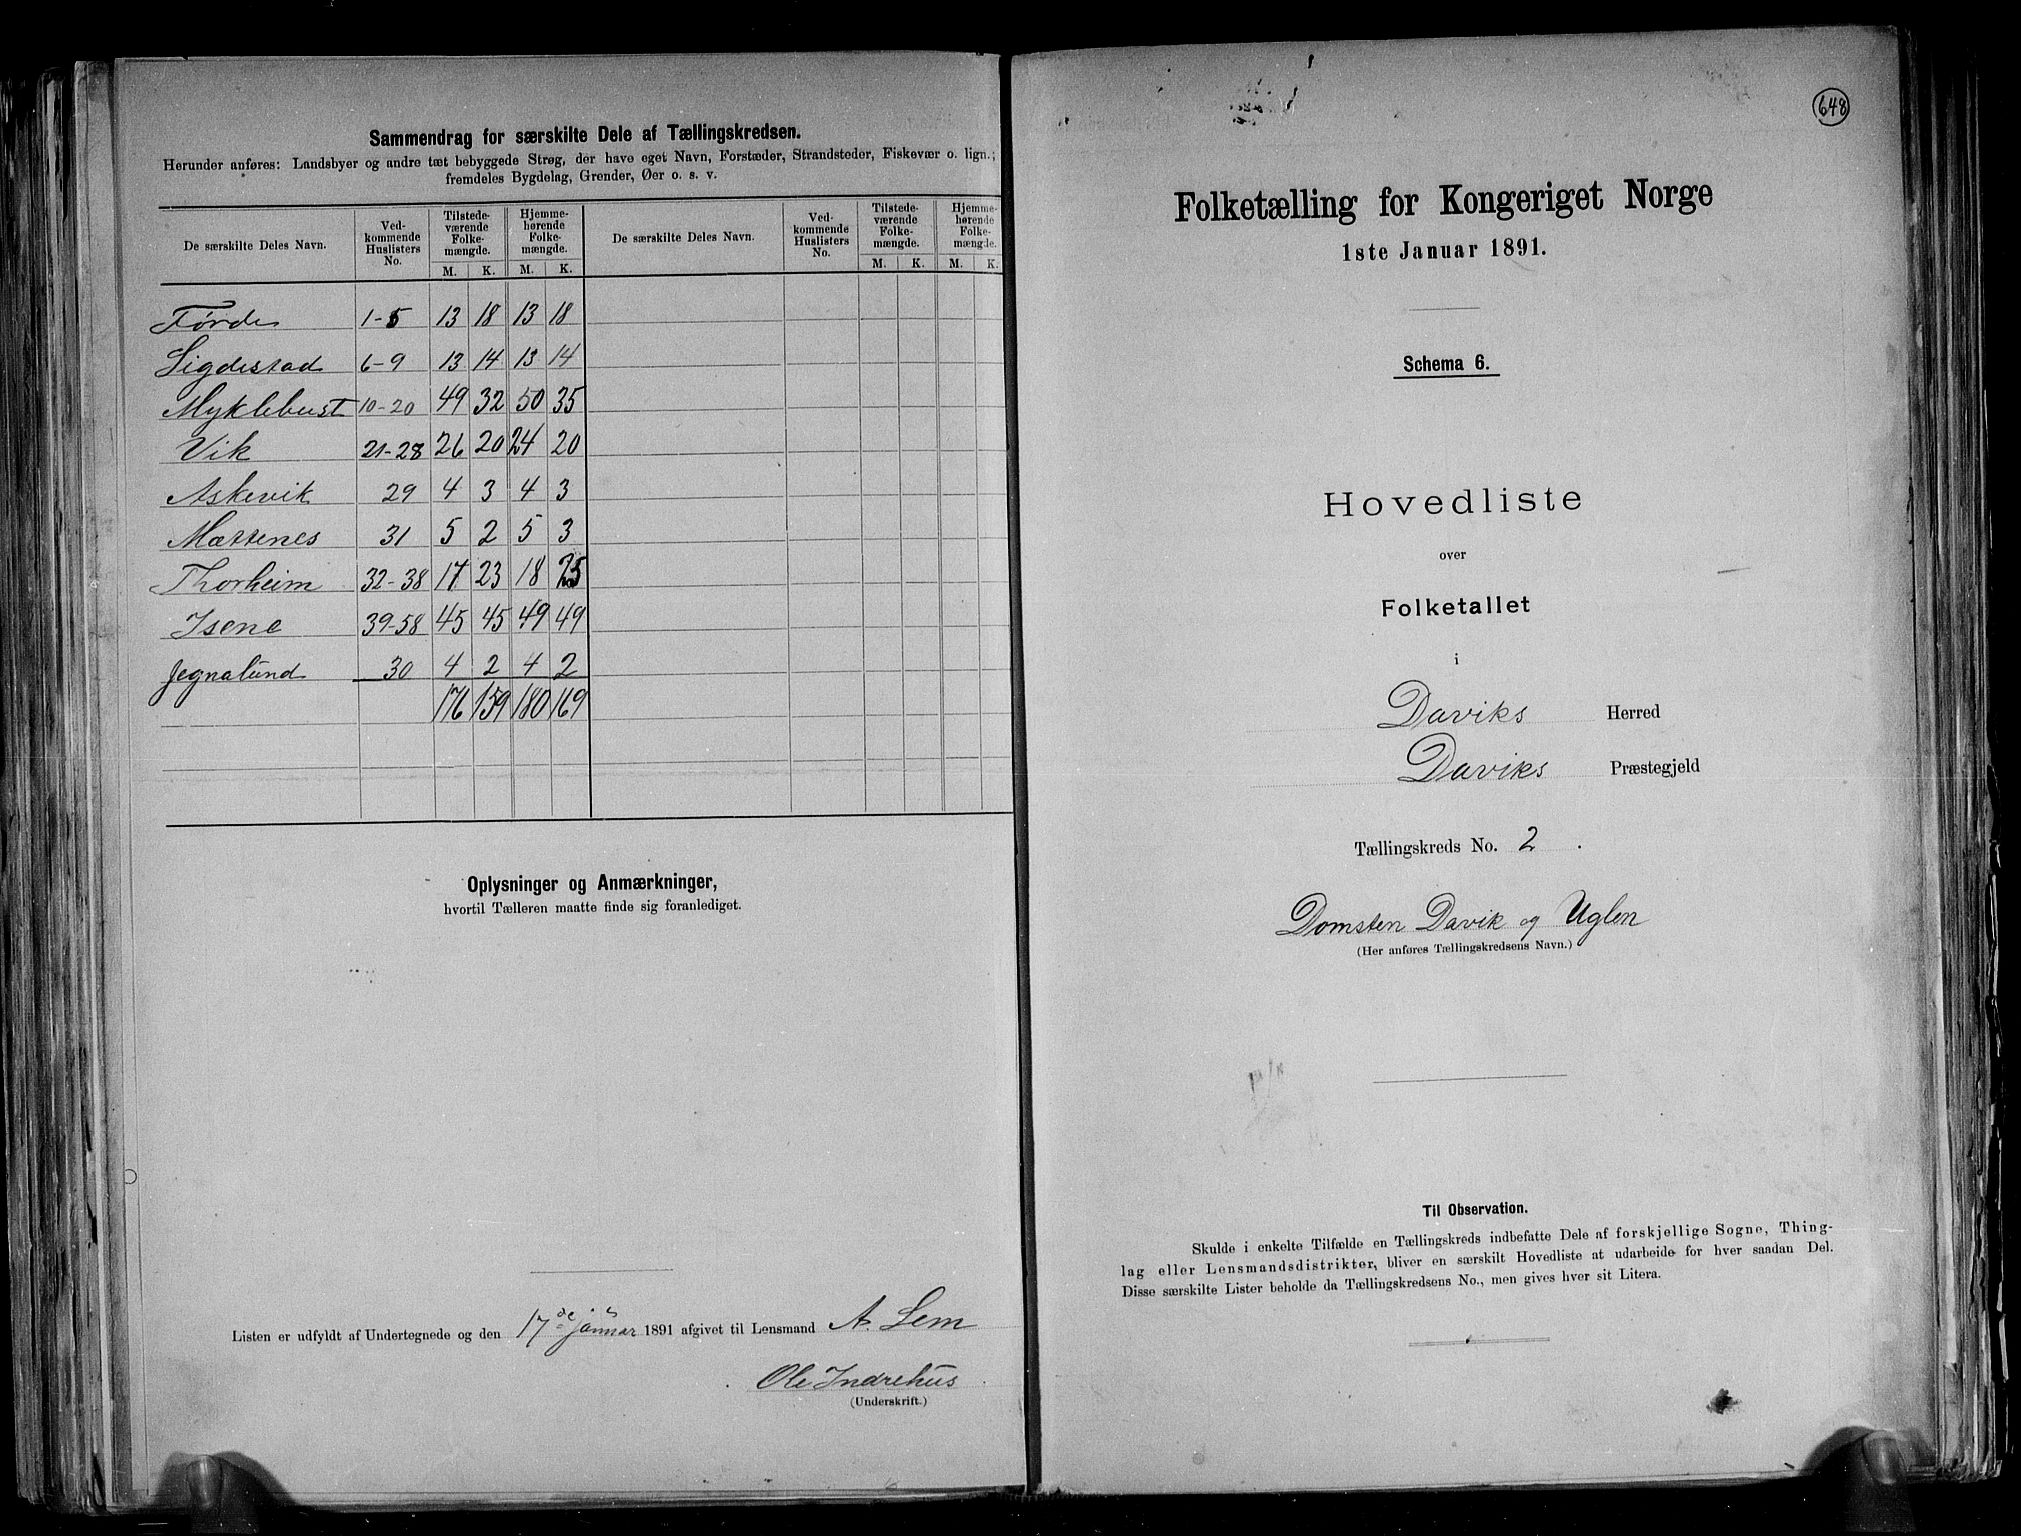 Sammendrag for særskilte Dele af Tællingskredsen.
Herunder anføres: Landsbyer og andre tæt bebyggede Strøg, der have eget Navn, Forstæder, Strandsteder, Fiskevær o. lign.;
fremdeles Bygdelag, Grender, Øer o. s. v.
De særskilte Deles Navn. Ved-kommende Huslisters No. Tilstede-værende Folke-mængde. Hjemme-hørende Folke-mængde. De særskilte Deles Navn. Ved-kommende Huslisters No. Tilstede-værende Folke-mængde. Hjemme-hørende Folke-mængde.
M. K. M. K. M. K. M. K.
Førde 1-5 13 18 13 18
Sigdestad 6-9 13 14 13 14
Myklebust 10-20 49 32 50 35
Vik 21-28 26 20 24 20
Askevik 29 4 3 4 3
Mattenes 31 5 2 5 3
Thorheim 32-38 17 23 18 25
Isene 39-58 45 45 49 49
Jegnalund 30 4 2 4 2
176 159 180 169
Oplysninger og Anmærkninger,
hvortil Tælleren maatte finde sig foranlediget.
Listen er udfyldt af Undertegnede og den 17de januar 1891 afgivet til Lensmand A. Lem
Ole Indrehus
(Underskrift.)
648
Folketælling for Kongeriget Norge
1ste Januar 1891.
Schema 6.
Hovedliste
over
Folketallet
i
Daviks Herred
Daviks Præstegjeld
Tællingskreds No. 2.
Domsten Davik og Uglen
(Her anføres Tællingskredsens Navn.)
Til Observation.
Skulde i enkelte Tilfælde en Tællingskreds indbefatte Dele af forskjellige Sogne, Thing-
lag eller Lensmandsdistrikter, bliver en særskilt Hovedliste at udarbeide for hver saadan Del.
Disse særskilte Lister beholde da Tællingskredsens No., men gives hver sit Litera.